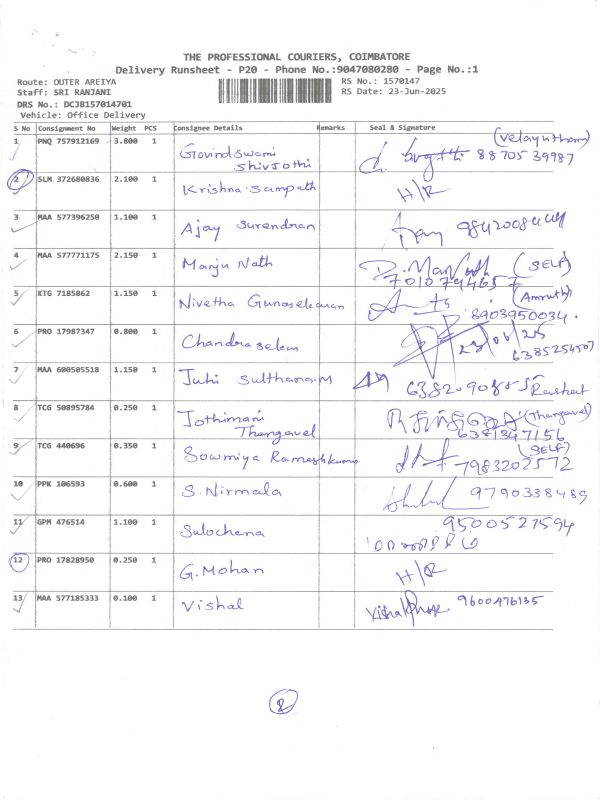 THE PROFESSIONAL COURIERS, COIMBATORE
Delivery Runsheet - P20 - Phone No.:9047080280 - Page No.:1
Route: OUTER AREIYA
Staff: SRI RANJANI
DRS No.: DCJB157014701
Vehicle: Office Delivery
RS No.: 1570147
RS Date: 23-Jun-2025
S No Consignment No Weight PCS Consignee Details Remarks Seal & Signature
1 PNQ 757912169 3.800 1 Govindswami Shivjothi (Velayutham) 8870539987
2 SLM 372680836 2.100 1 Krishna Sampath H/R
3 MAA 577396250 1.100 1 Ajay Surendran
4 MAA 577771175 2.150 1 Manju Nath (SELF) 7010794657
5 KTG 7185862 1.150 1 Nivetha Gunasekaran (Amruth) 8903950034.
6 PRO 17987347 0.800 1 Chandraselem 23/06/25 6385254507
7 MAA 600505518 1.150 1 Juhi Sulthana.M
8 TCG 50895784 0.250 1 Jothimani Thangavel (Thangavel) 6381347156
9 TCG 440696 0.350 1 Sowmiya Rameshkumar (SELF) 7983202572
10 PPK 106593 0.600 1 S.Nirmala 9790338489
11 GPM 476514 1.100 1 Sulochena 9500527594
12 PRO 17828950 0.250 1 G.Mohan H/R
13 MAA 577185333 0.100 1 Vishal 9600476135
2